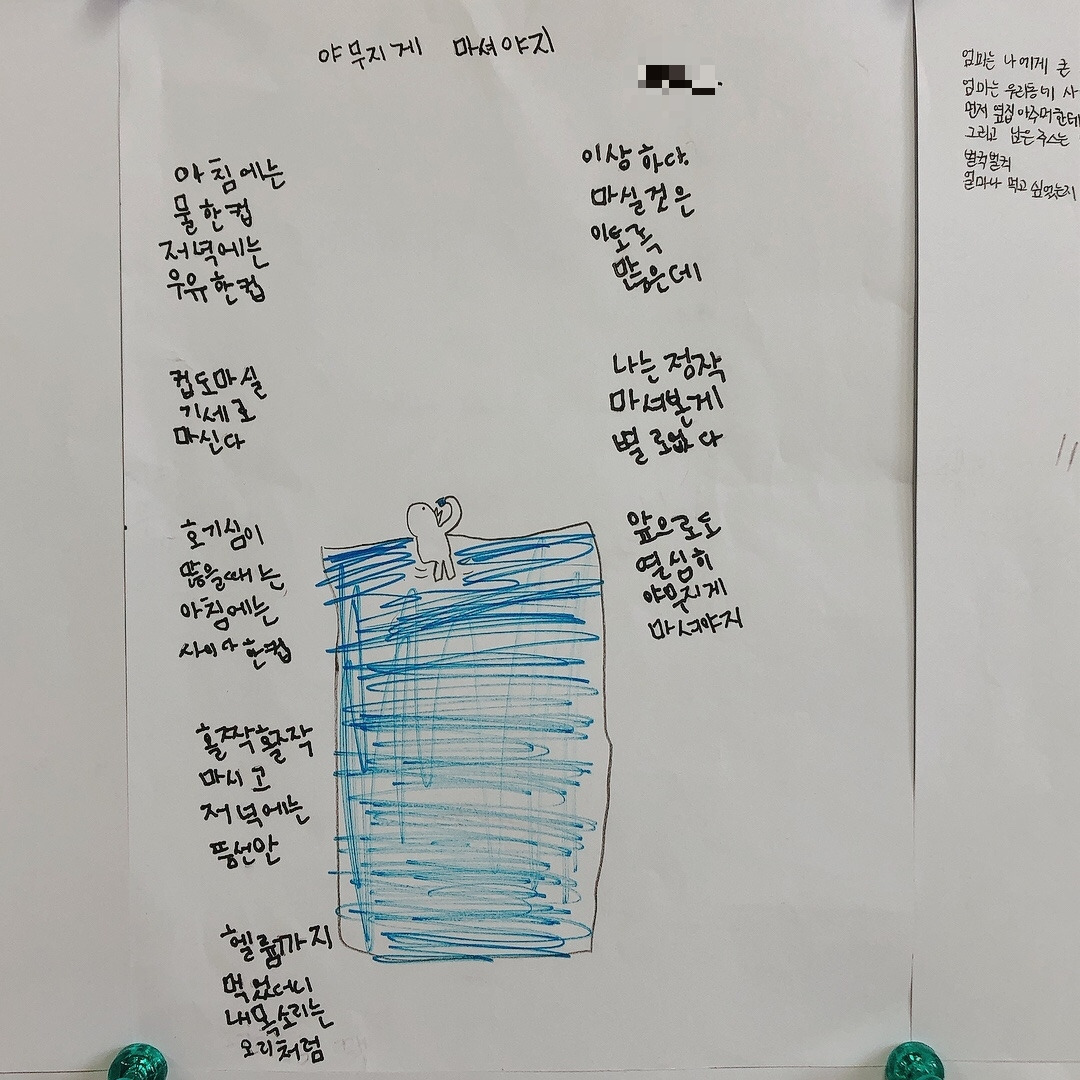 야무지게 마셔야지
아침에는
물 한컵
저녁에는
우유 한컵
컵도마실
기세로
마신다
호기심이
많을때는
아침에는
사이다 한컵
홀짝홀작
마시고
저녁에는
풍선안
헬륨까지
먹었더니
내목소리는
오리처럼
이상하다.
마실것은
이토록
많은데
나는 정작
마셔본게
별로없다
앞으로도
열심히
야무지게
마셔야지
엄마는 나에게 큰
엄마는 우리동네 사
먼저 옆집 아주머한테
그리고 남은 주스는
벌컥벌컥
얼마나 먹고 싶었는지